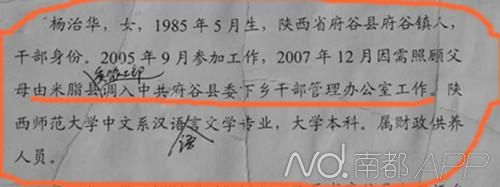 杨治华，女，1985年5月生，陕西省府谷县府谷镇人，
干部身份。2005年9月参加工作，2007年12月因需照顾父
母由米脂县调入中共府谷县委下乡干部管理办公室工作。陕
西师范大学中文系汉语言文学专业，大学本科。属财政供养
语
人员。
Nd.南都APP